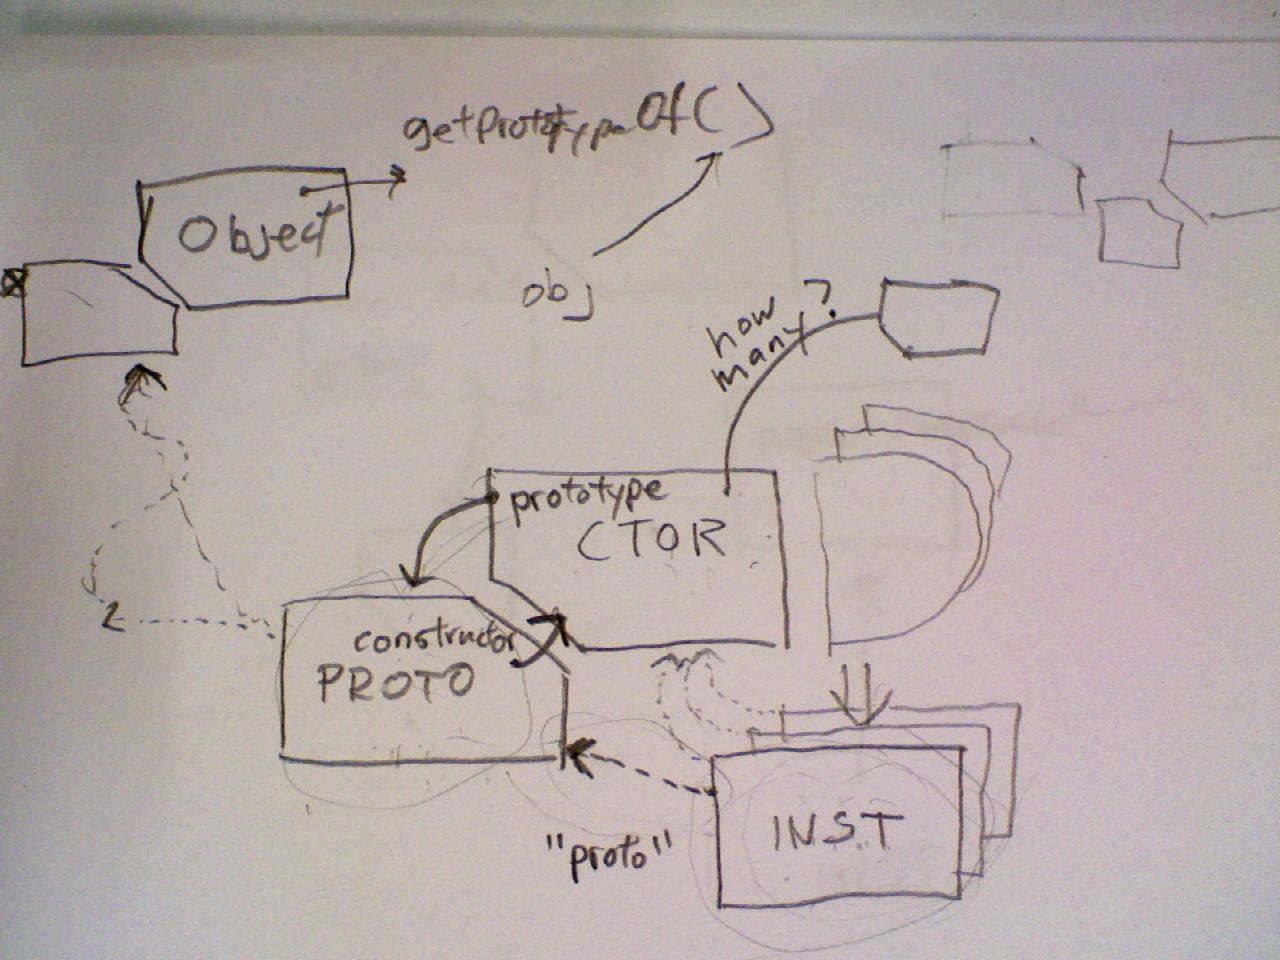 getPrototypeOf()
Object
obj
how
many?
prototype
CTOR
constructor
PROTO
INST
"proto"